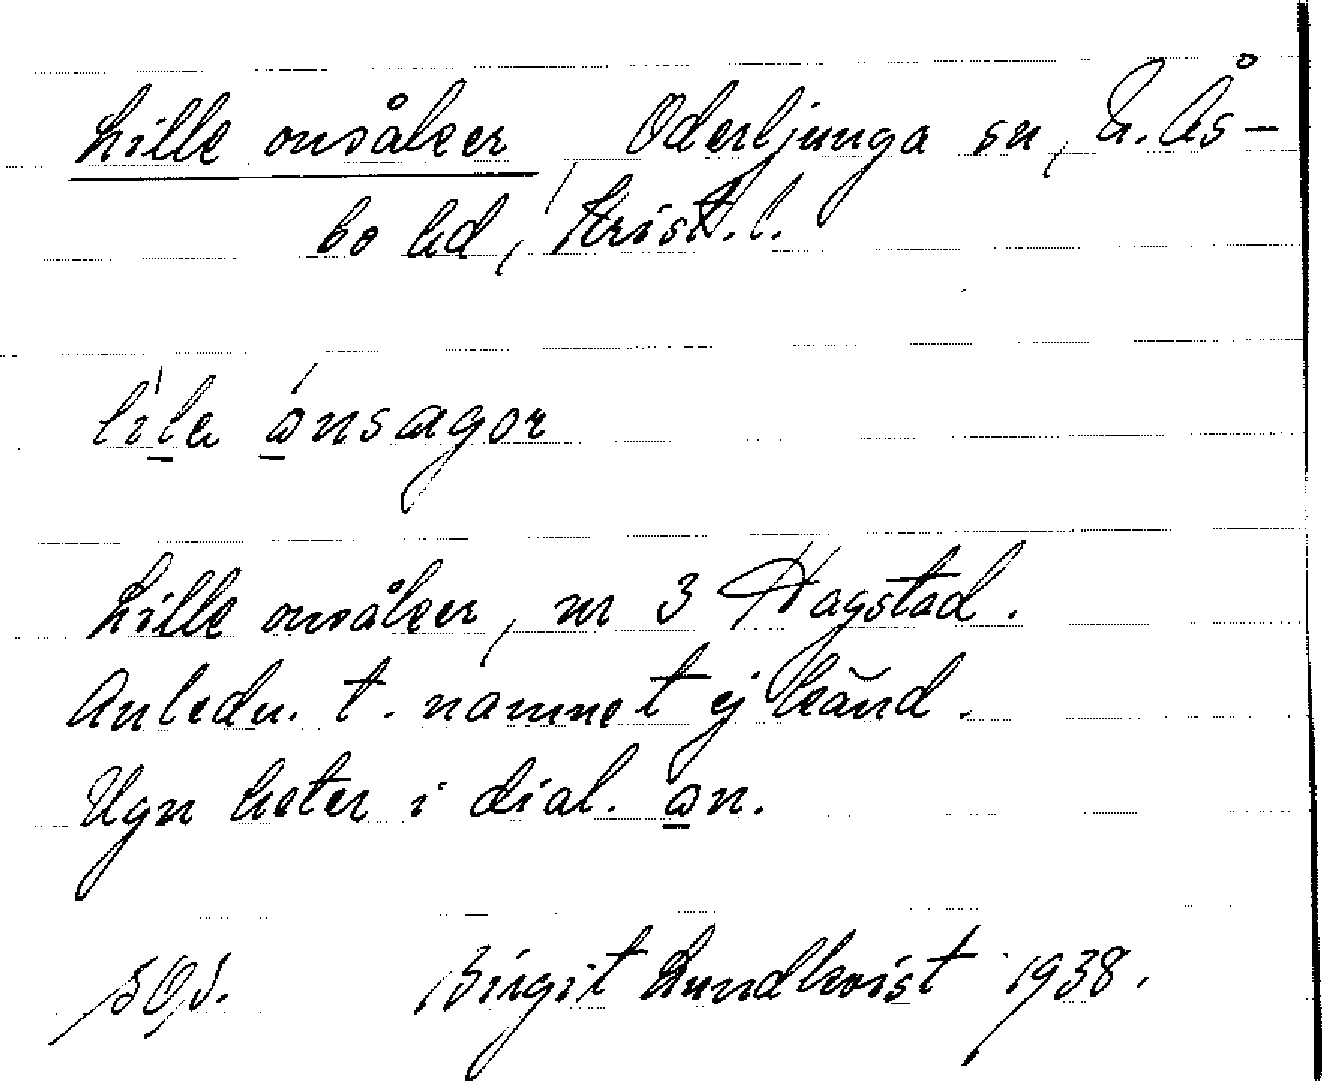 Lille onsåker, Oderljunga sn, N. Ås-
bo hd, Krist. l.
lila ønsagor
Lille onsåker, nr 3 Hagstad.
Anledn. t. namnet ej känd.
Ugn heter i dial. øn.
Birgit Lundkvist 1938.